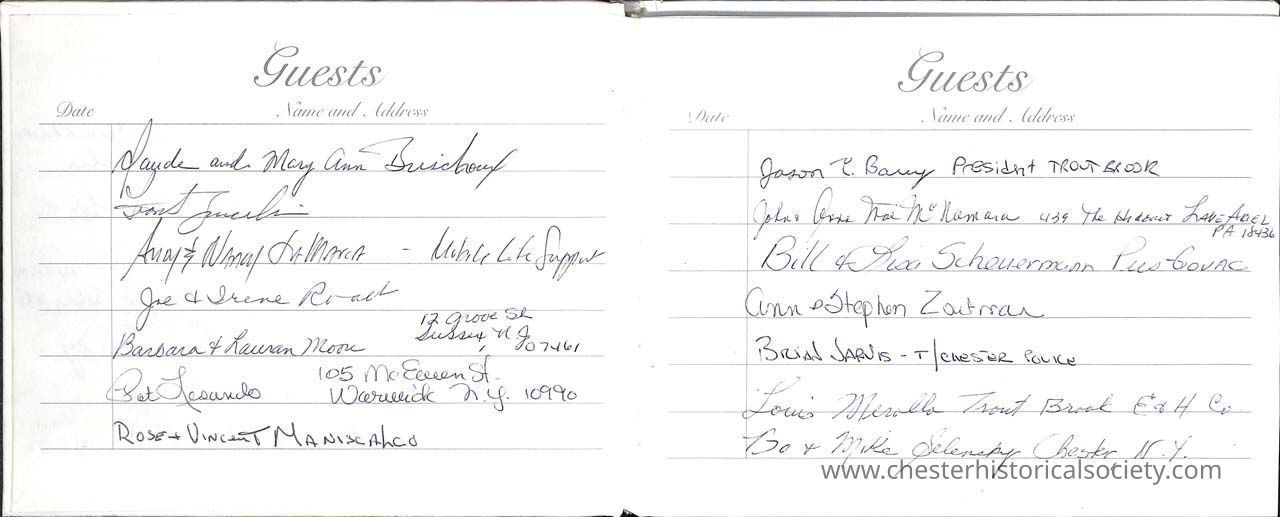 Guests
Date Name and Address
and Mary Ann
Nancy LaMarca - Mobile Life Support
Joe & Irene
12 Grove St
Sussex, N.J.
07461
Barbara & Moore
105 McEwen St.
Pat Warwick N.Y. 10990
Rose & Vincent Maniscalco
Guests
Date Name and Address
Jason C. Barry President Trout Brook
John & Anna Mae McNamara 439 The Hideout Lake Ariel
PA 18436
Bill & Lisa Scheuermann
Ann & Stephen
Brian Jarvis - T/Chester Police
Louis Merolla Trout Brook E & H Co
Bo & Mike Selensky Chester N.Y.
www.chesterhistoricalsociety.com